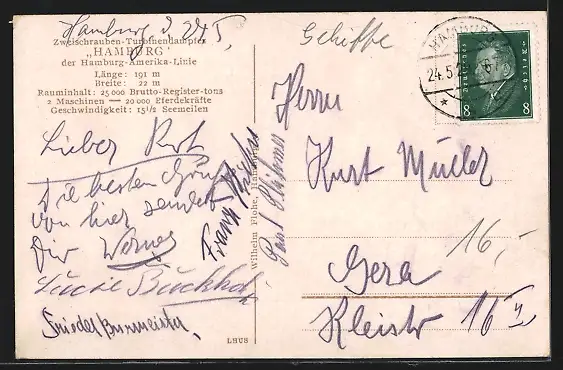 Hamburg d. 24.5.
Zweischrauben-Turbinendampfer
„HAMBURG"
der Hamburg-Amerika-Linie
Länge: 191 m
Breite: 22 m
Rauminhalt: 25000 Brutto-Register-tons
2 Maschinen — 20000 Pferdekräfte
Geschwindigkeit: 15½ Seemeilen
Lieber Kurt
Die besten Grüße
von hier sendet
Dir Werner
Lucie Buckhol
Frieder Burmeister
Franz
Wilhelm Flohe, Hamburg
Paul
LHUS
Schiffe
HAMBURG
24.5.
Deutsches Reich
8 8
Herrn
Kurt Müller
16,-
Gera
Kleistr 16